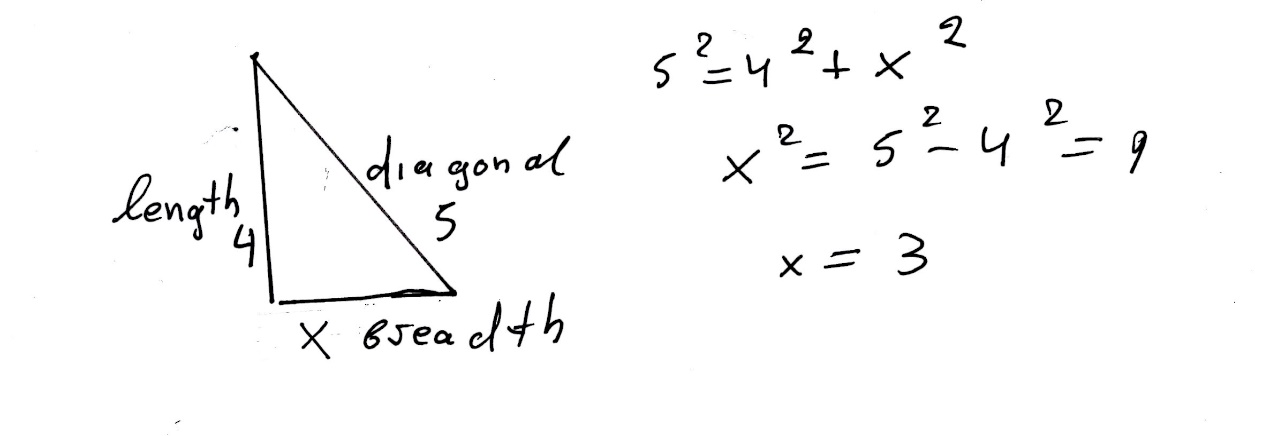 length
4
diagonal
5
x breadth
5² = 4² + x²
x² = 5² - 4² = 9
x = 3